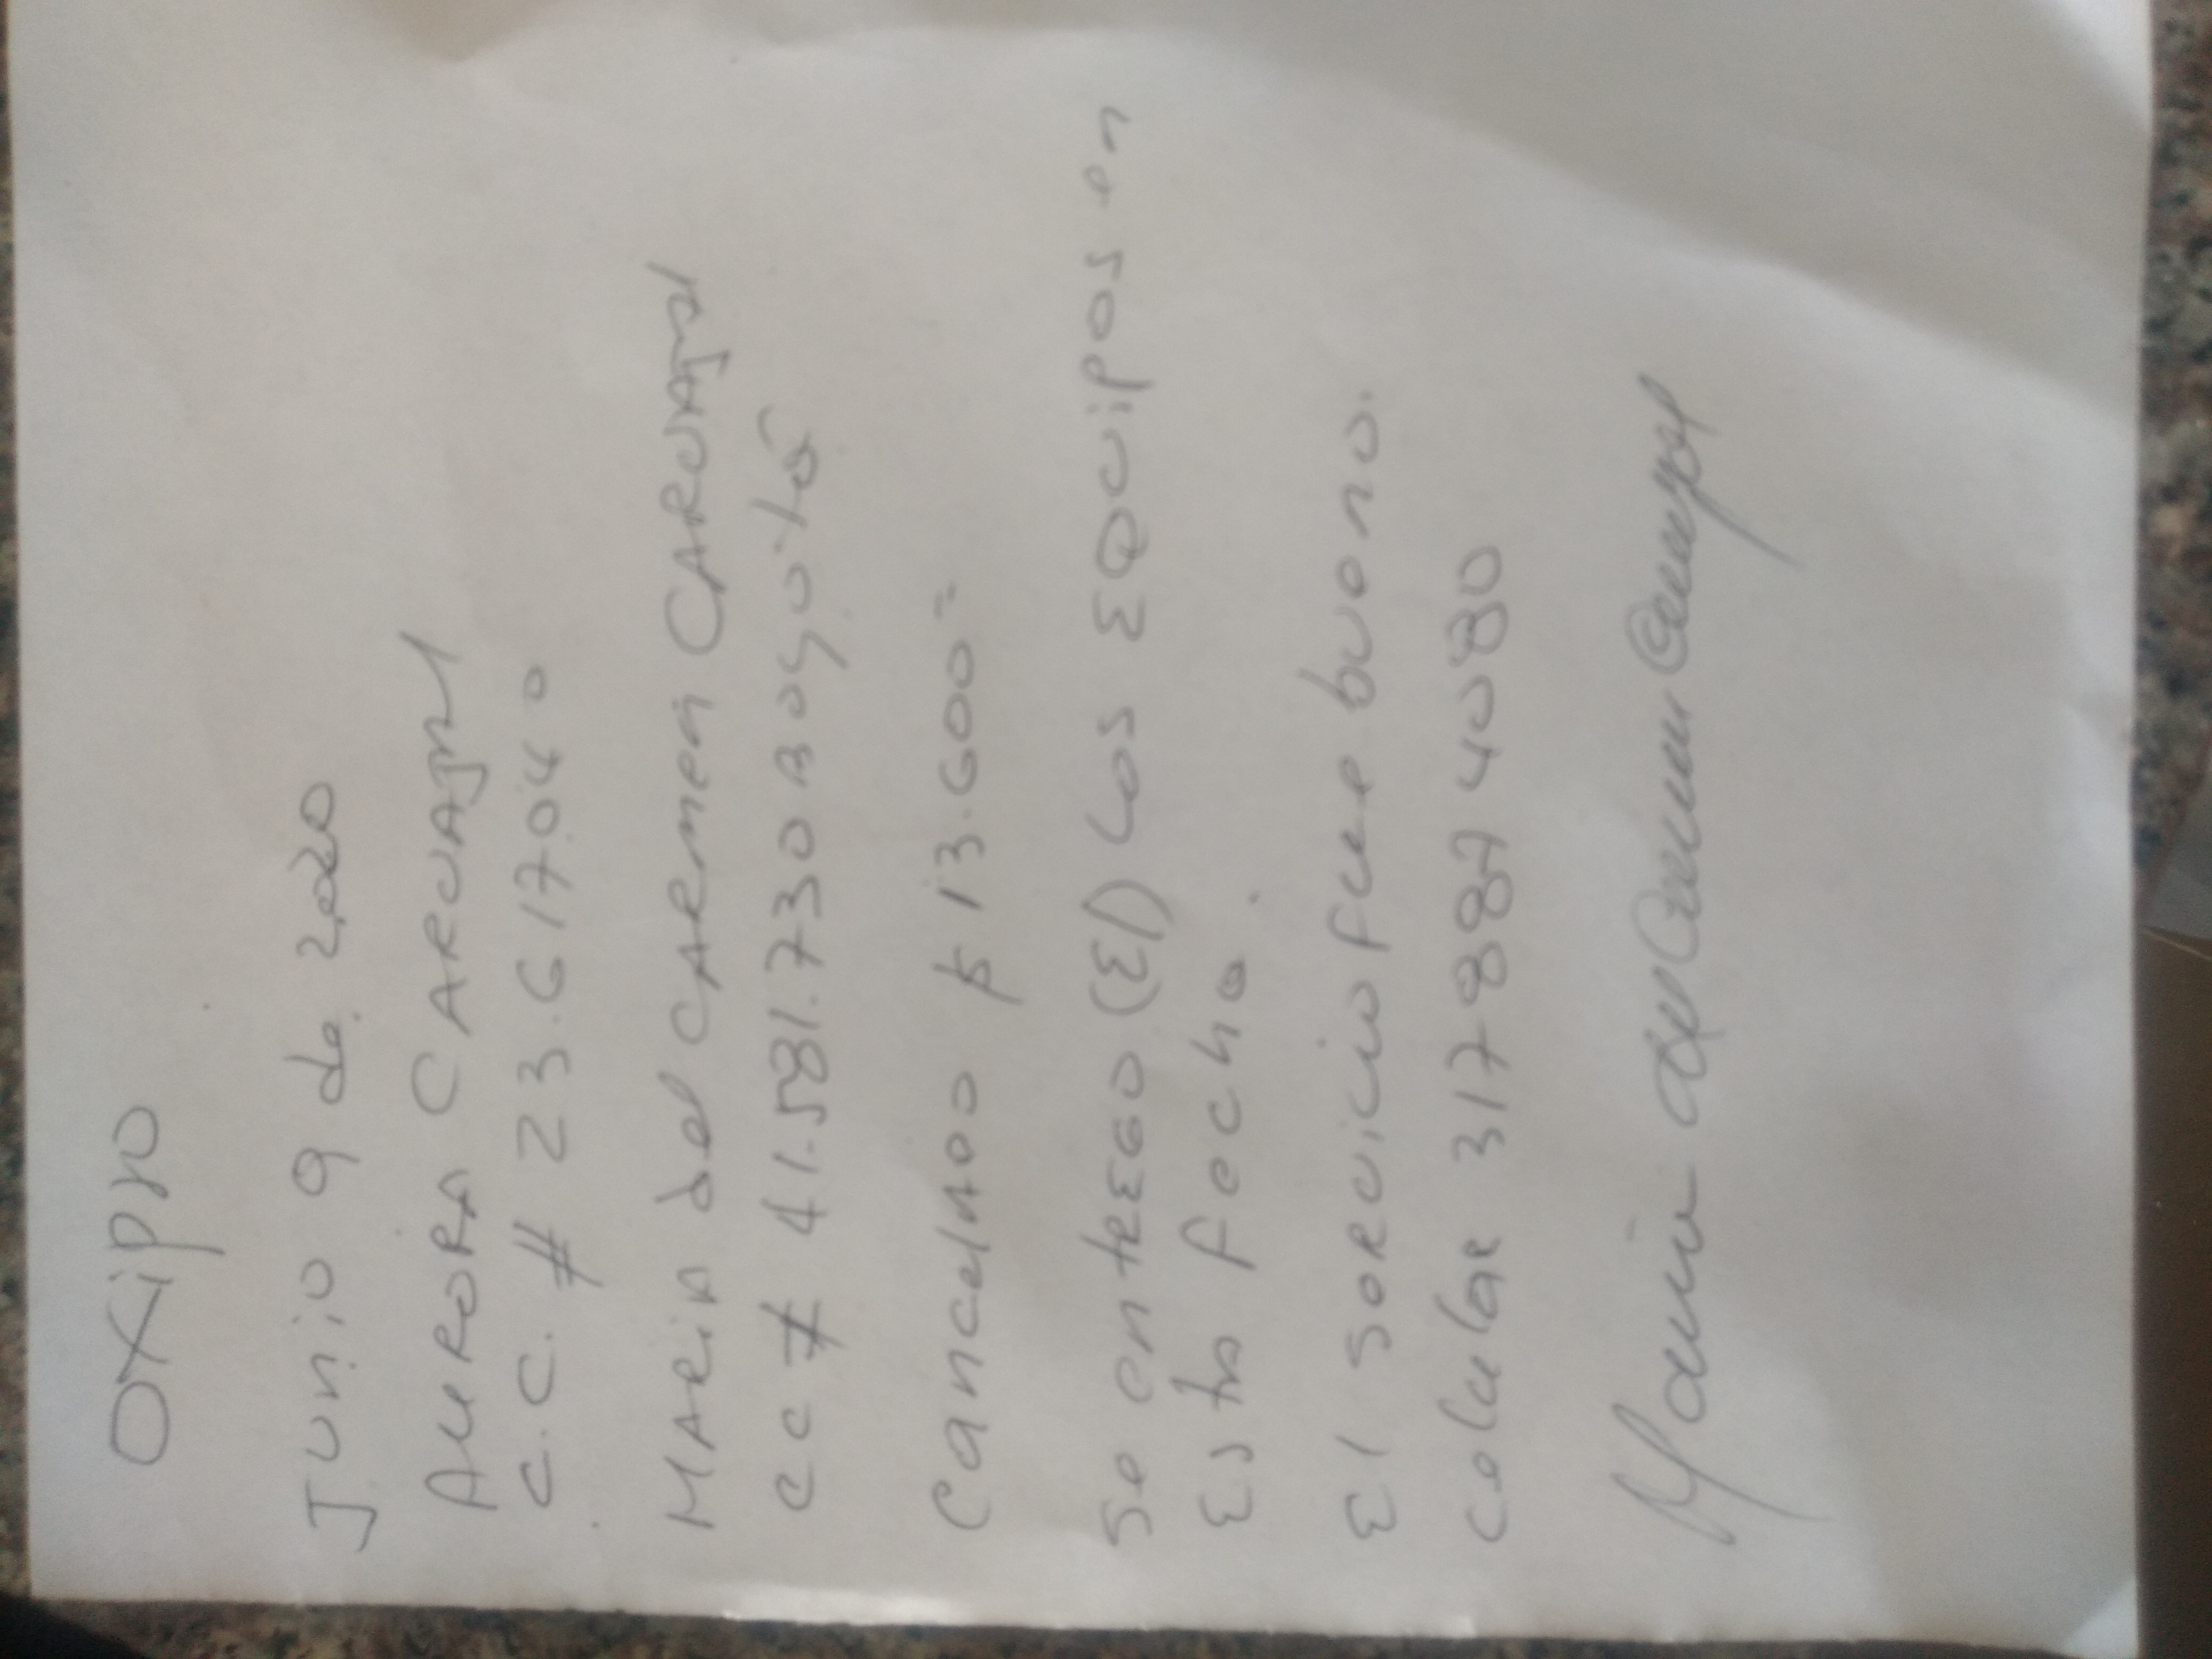 OXipro
Junio 9 de 2020
AURORA CARVAJAL
C.C. # 23.617.040
MARiA del CARmen CARVAJal
CC # 41.581.730 Bogotá
Cancelado $ 13.600=
Se entREGO (El) Los EQuipos en
Esta fecha.
El SeRvicio fue bueno.
Celular 317 887 4080
Maria del Carmen Carvajal